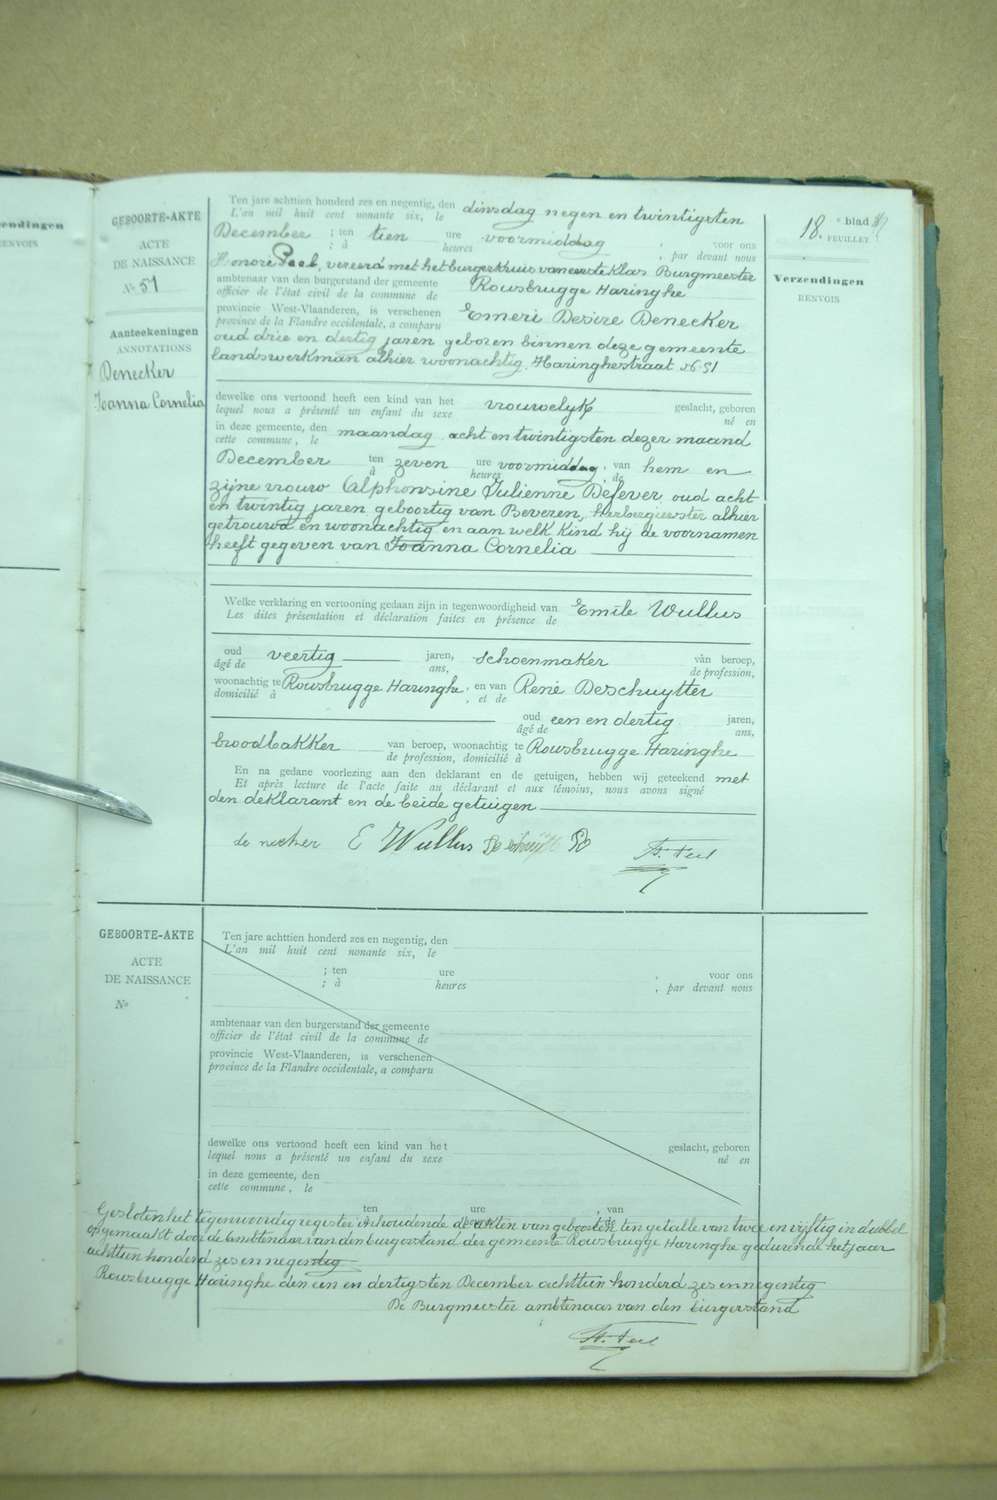 endingen
RENVOIS
GEBOORTE-AKTE
ACTE
DE NAISSANCE
No 51
Aanteekeningen
ANNOTATIONS
Denecker
Joanna Cornelia
Ten jare achttien honderd zes en negentig, den dinsdag negen en twintigsten
L'an mil huit cent nonante six, le
December ; ten tien ure voormiddag , voor ons
; à heures , par devant nous
Honoré Peel, vereerd met het burgerkruis van eerste klas Burgmeester
ambtenaar van den burgerstand der gemeente Rousbrugge Haringhe
officier de l'état civil de la commune de
provincie West-Vlaanderen, is verschenen Emeri Desire Denecker
province de la Flandre occidentale, a comparu
oud drie en dertig jaren geboren binnen deze gemeente
landswerkman alhier woonachtig, Haringhestraat 51
dewelke ons vertoond heeft een kind van het vrouwelyk geslacht, geboren
lequel nous a présenté un enfant du sexe né en
in deze gemeente, den maandag acht en twintigsten dezer maand
cette commune, le
December ten zeven ure voormiddag, van hem en
à heures de
zijne vrouw Alphonsine Julienne Defever oud acht
en twintig jaren geboortig van Beveren, herbergierster alhier
getrouwd en woonachtig en aan welk kind hij de voornamen
heeft gegeven van Joanna Cornelia
Welke verklaring en vertooning gedaan zijn in tegenwoordigheid van Emile Wullus
Les dites présentation et déclaration faites en présence de
oud veertig jaren, schoenmaker van beroep,
âgé de ans, de profession,
woonachtig te Rousbrugge Haringhe, en van René Deschuytter
domicilié à , et de
oud een en dertig jaren,
âgé de ans,
broodbakker van beroep, woonachtig te Rousbrugge Haringhe
de profession, domicilié à
En na gedane voorlezing aan den deklarant en de getuigen, hebben wij geteekend met
Et après lecture de l'acte faite au déclarant et aux témoins, nous avons signé
den deklarant en de beide getuigen
de necker E Wullus H. Peel
18. e blad
FEUILLET
Verzendingen
RENVOIS
GEBOORTE-AKTE
ACTE
DE NAISSANCE
No
Ten jare achttien honderd zes en negentig, den
L'an mil huit cent nonante six, le
; ten ure , voor ons
; à heures , par devant nous
ambtenaar van den burgerstand der gemeente
officier de l'état civil de la commune de
provincie West-Vlaanderen, is verschenen
province de la Flandre occidentale, a comparu
dewelke ons vertoond heeft een kind van het geslacht, geboren
lequel nous a présenté un enfant du sexe né en
in deze gemeente, den
cette commune, le
ten ure , van
Gesloten het tegenwoordig register inhoudende de akten van geboorten ten getalle van twee en vijftig in dubbel
opgemaakt door de Ambtenaar van den burgerstand der gemeente Rousbrugge Haringhe gedurende het jaar
achttien honderd zes en negentig
Rousbrugge Haringhe den een en dertigsten December achttien honderd zes en negentig
De Burgmeester ambtenaar van den burgerstand
H. Peel